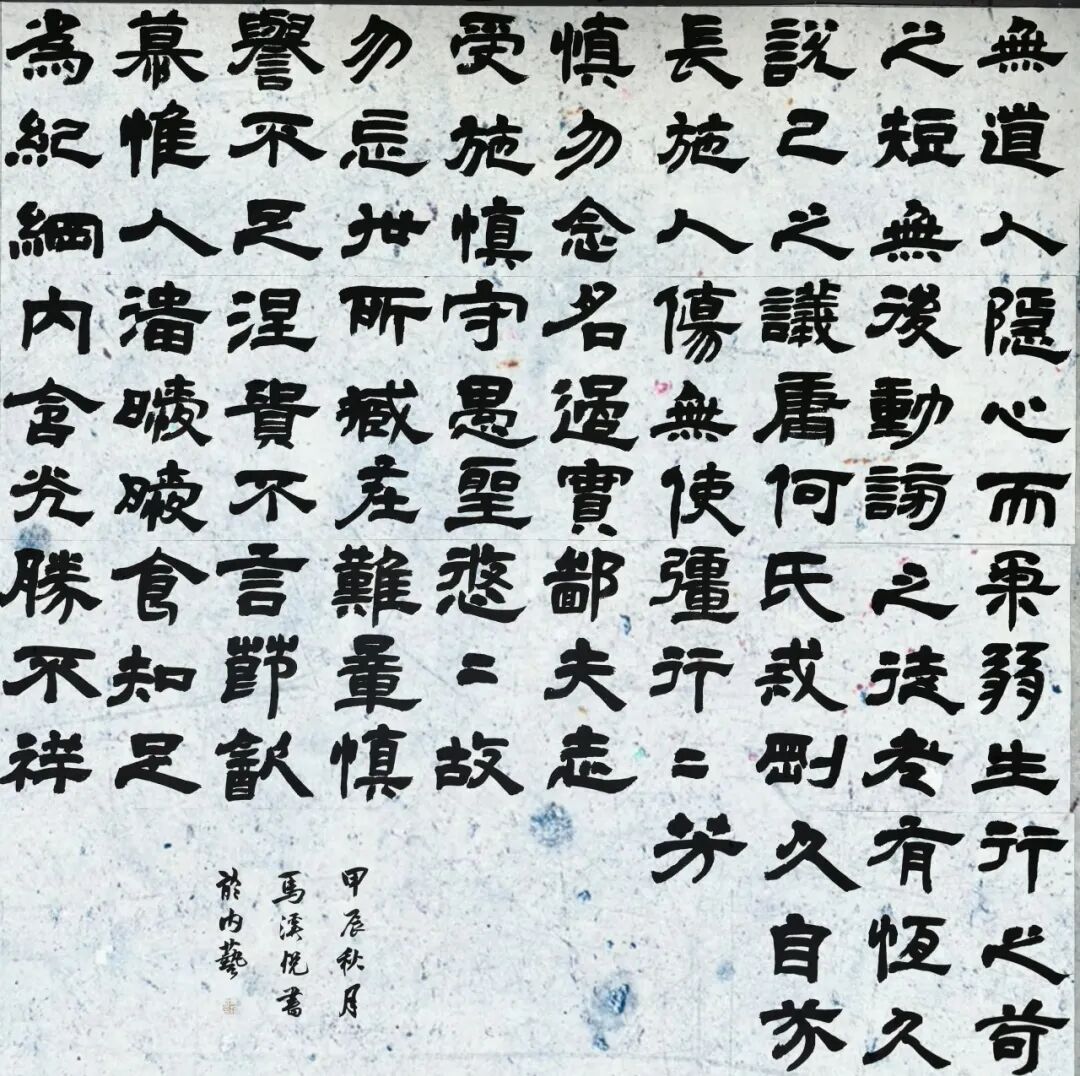 無道人
之短無
說己之
長施人
慎勿念
受施慎
勿忘世
譽不足
慕惟人
為紀綱
隱心而
後動謗
議庸何
傷無使
名過實
守愚聖
所臧在
涅貴不
湽曖曖
內含光
柔弱生
之徒老
氏戒剛
彊行二
鄙夫志
悠二故
難量慎
言節飲
食知足
勝不祥
行之苟
有恆久
久自芬
芳
甲辰秋月
馬溪倪書
於內藝